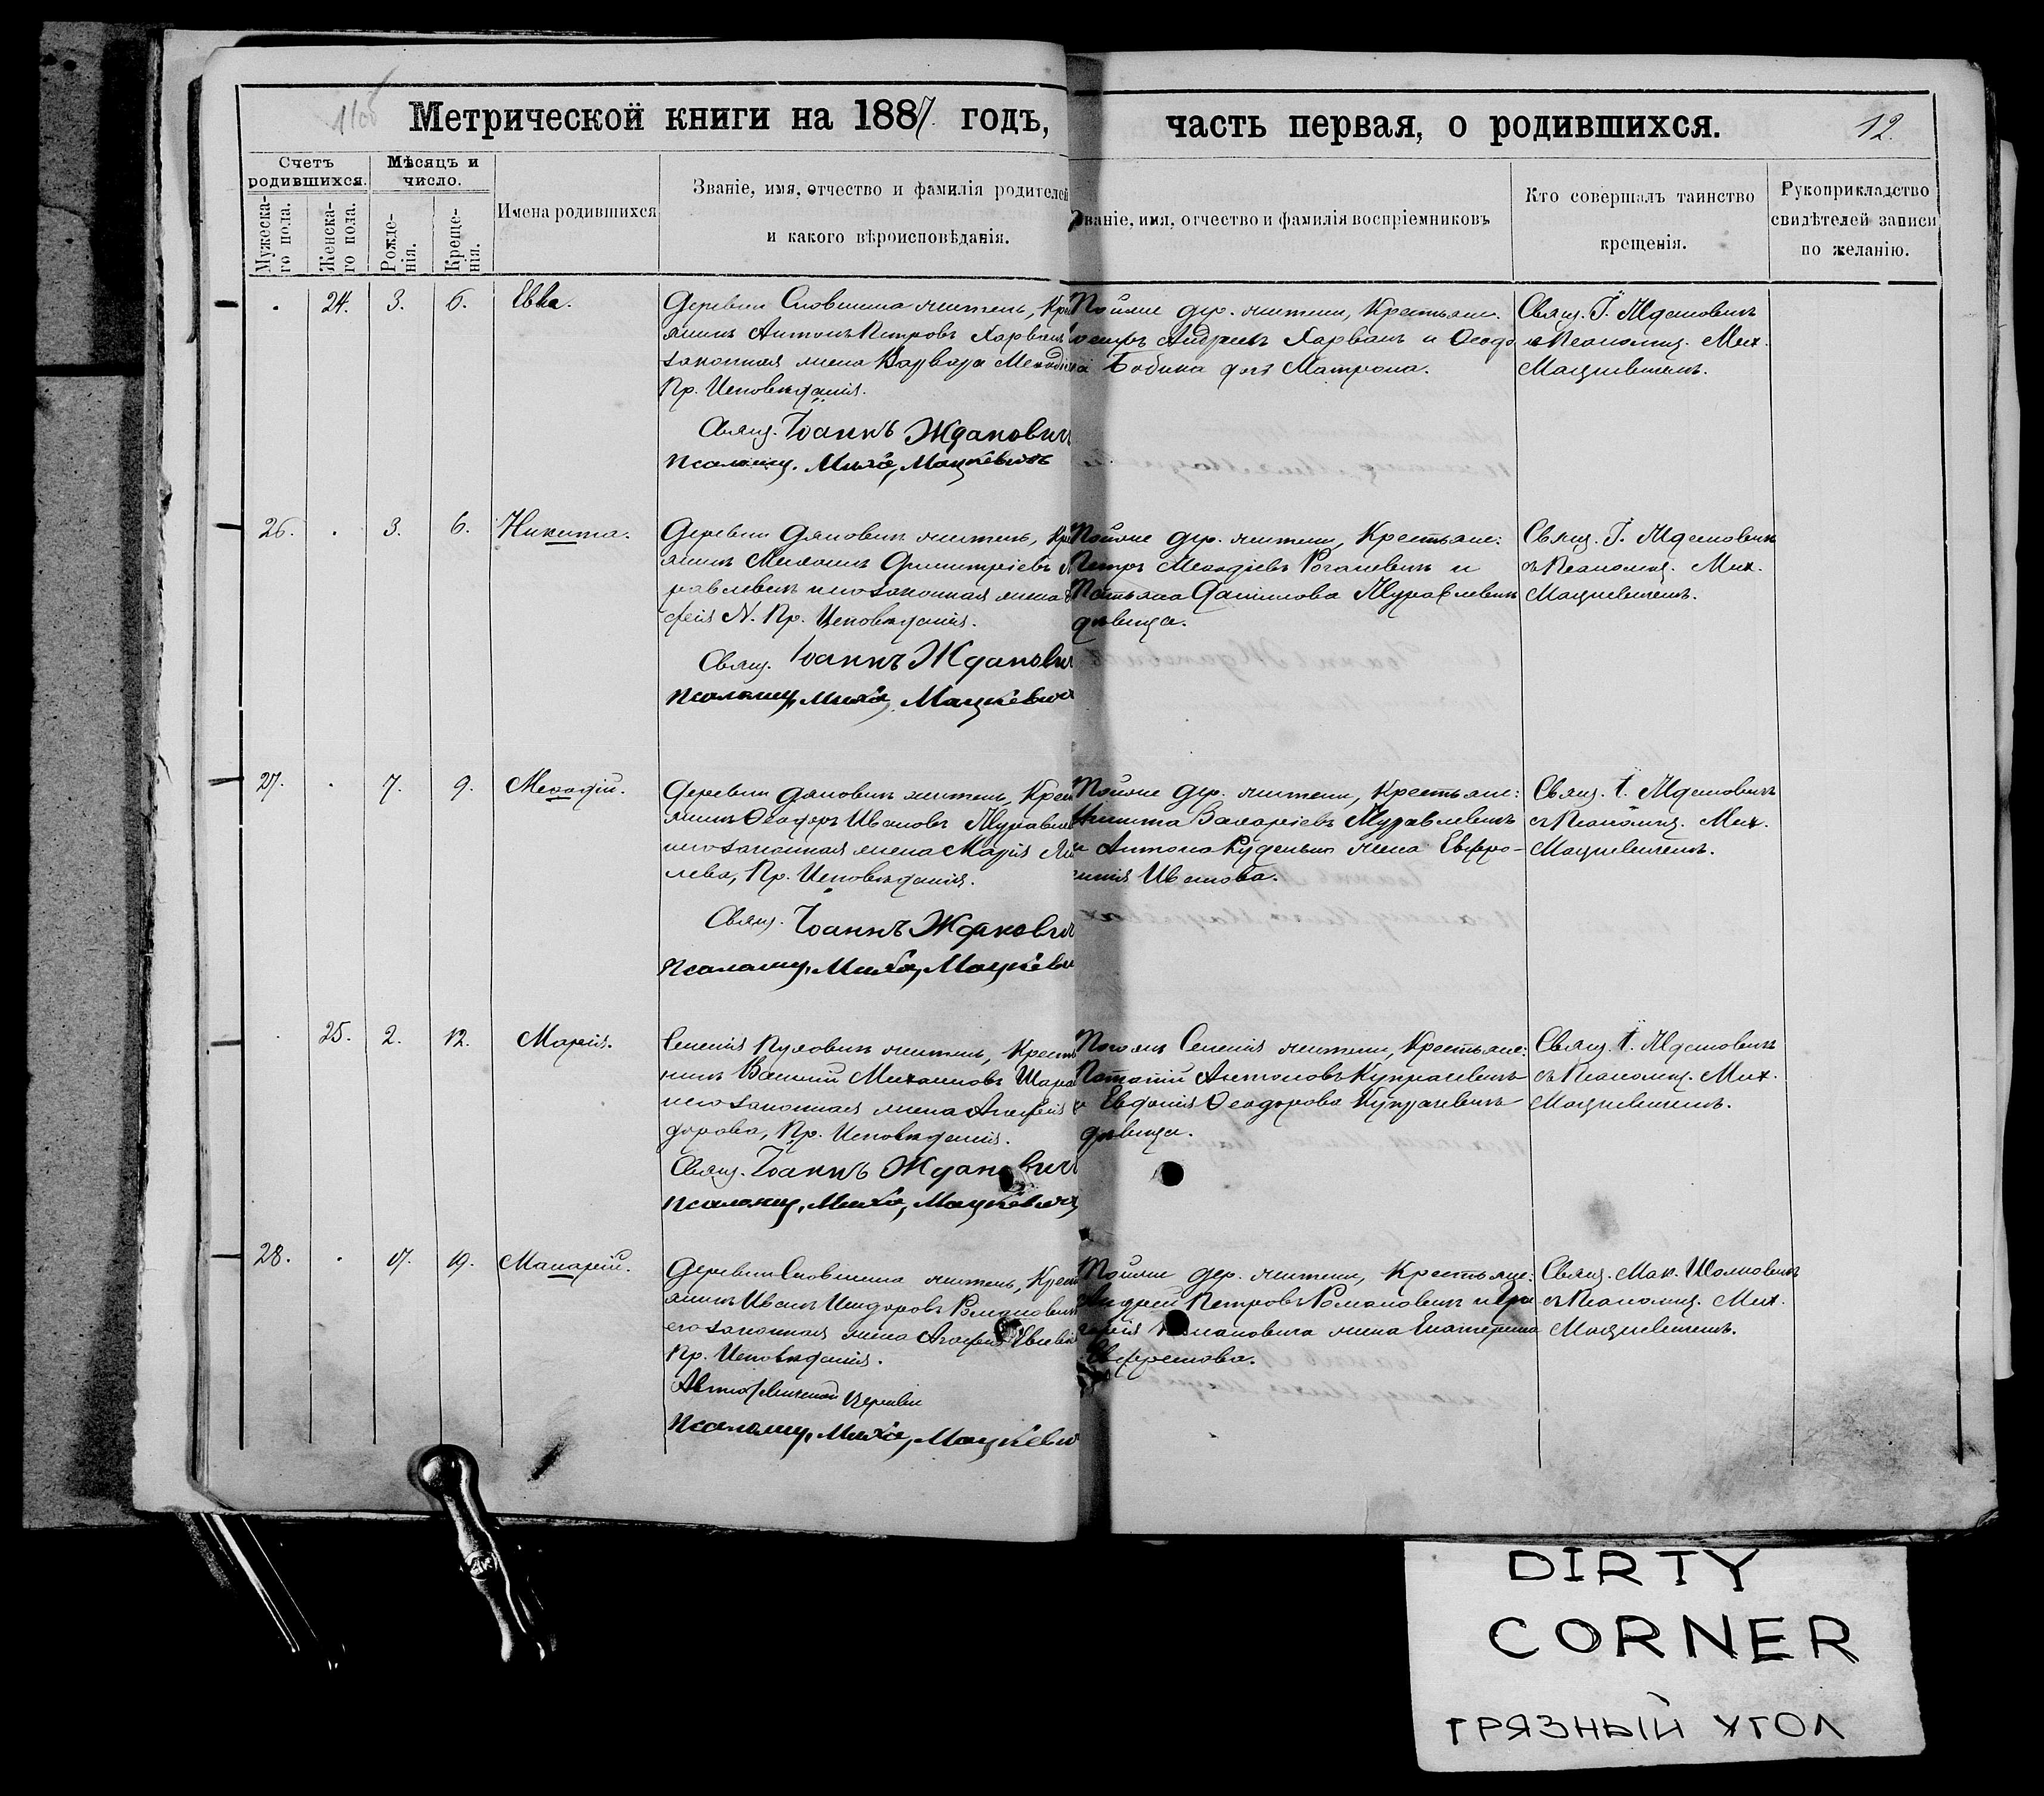 11об
Метрической книги на 1887 годъ,
часть первая, о родившихся.
12.
Счетъ родившихся.
Мѣсяцъ и число.
Мужеска-го пола.
Женска-го пола.
Рожде-нія.
Креще-нія.
Имена родившихся
Званіе, имя, отчество и фамилія родителей
и какого вѣроисповѣданія.
Званіе, имя, отчество и фамилія воспріемниковъ
Кто совершалъ таинство
крещенія.
Рукоприкладство
свидѣтелей записи
по желанію.
24. 3. 6. Евва.
Деревни житель,
янинъ Антонъ Петровъ Харванъ
законная жена Варвара
Пр. Исповѣданія.
Свящ. Іоаннъ Жданович
Псаломщ. Миха, Мацкевичъ
Тойже дер. жители, Крестьяне.
Андреев Харванъ и
Бобика дочь Матрона.
Свящ. І. Ждановичъ
съ Псаломщ. Мих.
Мацкевичемъ.
26. 3. 6. Никита.
Деревни Дяковичъ житель,
янинъ Михаилъ Димитріевъ
равлевичъ и его законная жена
фія N. Пр. Исповѣданія.
Свящ. Іоаннъ Жданович
Псаломщ, Миха, Мацкевич
Тойже дер. жители, Крестьяне:
Петръ Меѳодіевъ Рогалевичъ и
Татьяна Данилова Журавлевичъ
дѣвица.
Свящ. І. Ждановичъ
съ Псаломщ. Мих.
Мацкевичемъ.
27. 7. 9. Меѳодій.
Деревни Дяковичъ житель, Крест
янинъ Ѳеодоръ Ивановъ Журавлев
и его законная жена Марія
лева, Пр. Исповѣданія.
Свящ. Іоаннъ Жданович
Псаломщ, Миха, Мацкеви
Тойже дер. жители, Крестьяне:
Никита Валеріевъ Журавлевичъ
и Антона Руденько жена Евфро-
синія Иванова.
Свящ. І. Ждановичъ
съ Псаломщ. Мих.
Мацкевичемъ.
25. 2. 12. Марія.
Селенія житель, Крестья
нинъ Василій Михаиловъ Шара
и его законная жена Агафія
дорова, Пр. Исповѣданія.
Свящ. Іоаннъ Жданович
Псаломщ, Миха, Мацкевичъ
Тогожъ Селенія жители, Крестьяне:
Потапій Антоновъ Купрацевичъ
и Евдокія Ѳеодорова Купрацевичъ
дѣвица.
Свящ. І. Ждановичъ
съ Псаломщ. Мих.
Мацкевичемъ.
28. 17. 19. Макарій.
Деревни житель, Крест
янинъ Иванъ Исидоровъ Романович
его законная жена Агафія
Пр. Исповѣданія.
Церкви
Псаломщ, Миха, Мацкевич
Тойже дер. жители, Крестьяне:
Андрей Петровъ Романовичъ и
Романовича жена Екатерина
Ефремова.
Свящ. Мак.
съ Псаломщ. Мих.
Мацкевичемъ.
DIRTY
CORNER
ГРЯЗНЫЙ УГОЛ